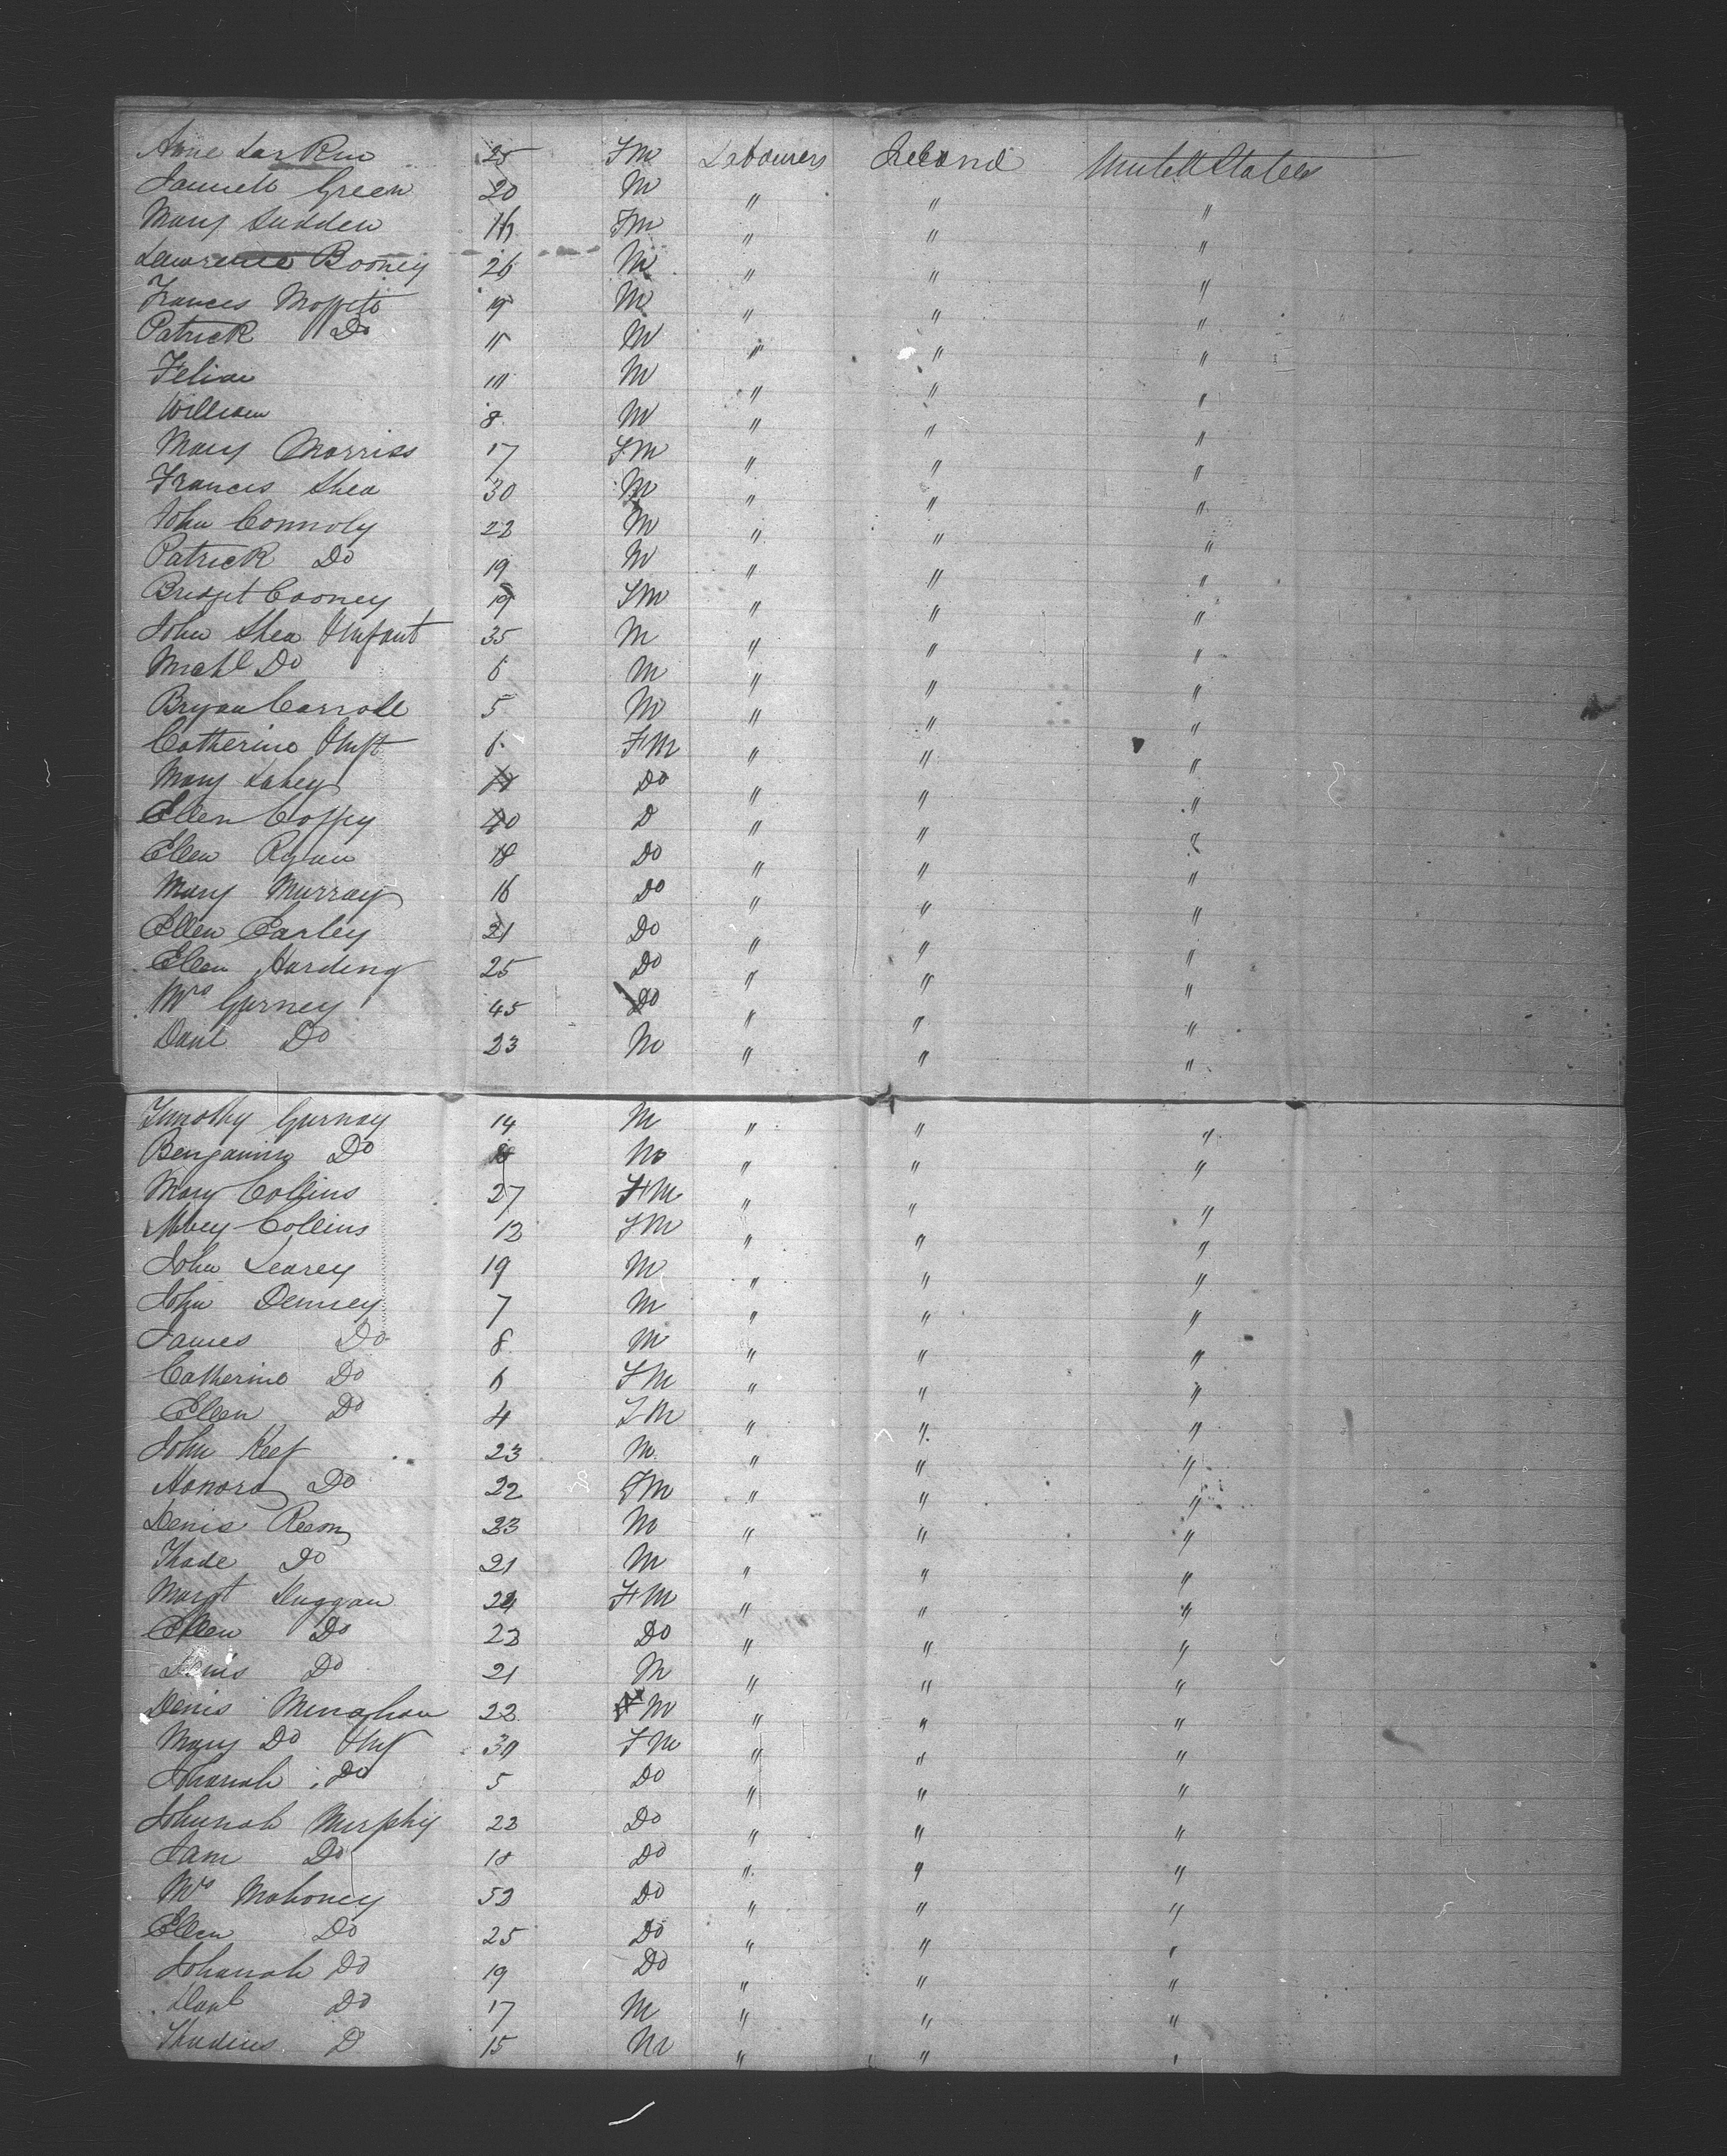 Anne Larkin 25 FM Labourers Ireland United States
Samuel Green 20 M " " "
Mary Sudden 16 FM " " "
Lawrence Booney 26 M " " "
Frances 19 M " " "
Patrick Do 11 M " " "
10 M " " "
William 8 M " " "
Mary Morriss 17 FM " " "
Frances Shea 30 M " " "
John Connoly 22 M " " "
Patrick Do 19 M " " "
Bridget Cooney 19 FM " " "
John Shea & Infant 35 M " " "
Michl Do 6 M " " "
Bryan Carroll 5 M " " "
Catherine & Inft 6 FM " " "
Mary Lahey Do " " "
Ellen Coffey 40 D " " "
Ellen Ryan 18 Do " " "
Mary Murray 16 Do " " "
Ellen Earley 21 Do " " "
Ellen Harding 25 Do " " "
Mrs Gurney 45 Do " " "
Danl Do 23 M " " "
Timothy Gurnay 14 M " " "
Benjamin Do M " " "
Mary Collins 27 FM " " "
Abbey Collins 12 FM " " "
John Learey 19 M " " "
John Demsey 7 M " " "
James Do 8 M " " "
Catherine Do 6 FM " " "
Ellen Do 4 FM " " "
John Keef 23 M " " "
Honora Do 22 FM " " "
Denis 23 M " " "
Thade Do 21 M " " "
Margt Duggan 24 FM " " "
Ellen Do 22 Do " " "
Denis Do 21 M " " "
Denis Minaghan 22 M " " "
Mary Do & Inf 30 FM " " "
Johanah Do 5 Do " " "
Johanah Murphy 22 Do " " "
Jam Do 18 Do " " "
Mrs Mahoney 52 Do " " "
Ellen Do 25 Do " " "
Johanah Do 19 Do " " "
Danl Do 17 M " " "
Thadeus D 15 M " " "